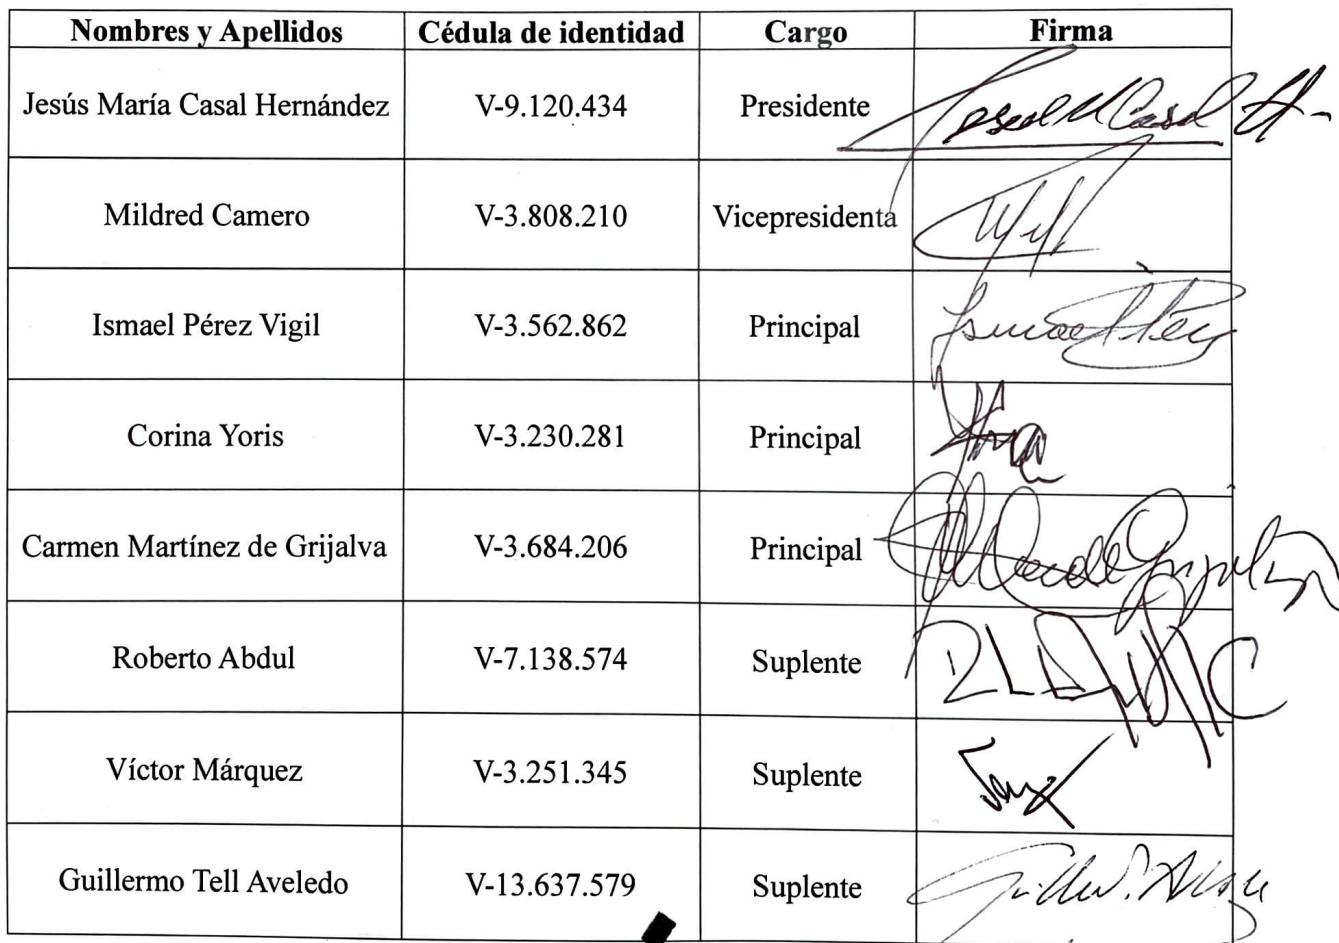 Nombres y Apellidos Cédula de identidad Cargo Firma
Jesús María Casal Hernández V-9.120.434 Presidente
Mildred Camero V-3.808.210 Vicepresidenta
Ismael Pérez Vigil V-3.562.862 Principal
Corina Yoris V-3.230.281 Principal
Carmen Martínez de Grijalva V-3.684.206 Principal
Roberto Abdul V-7.138.574 Suplente
Víctor Márquez V-3.251.345 Suplente
Guillermo Tell Aveledo V-13.637.579 Suplente